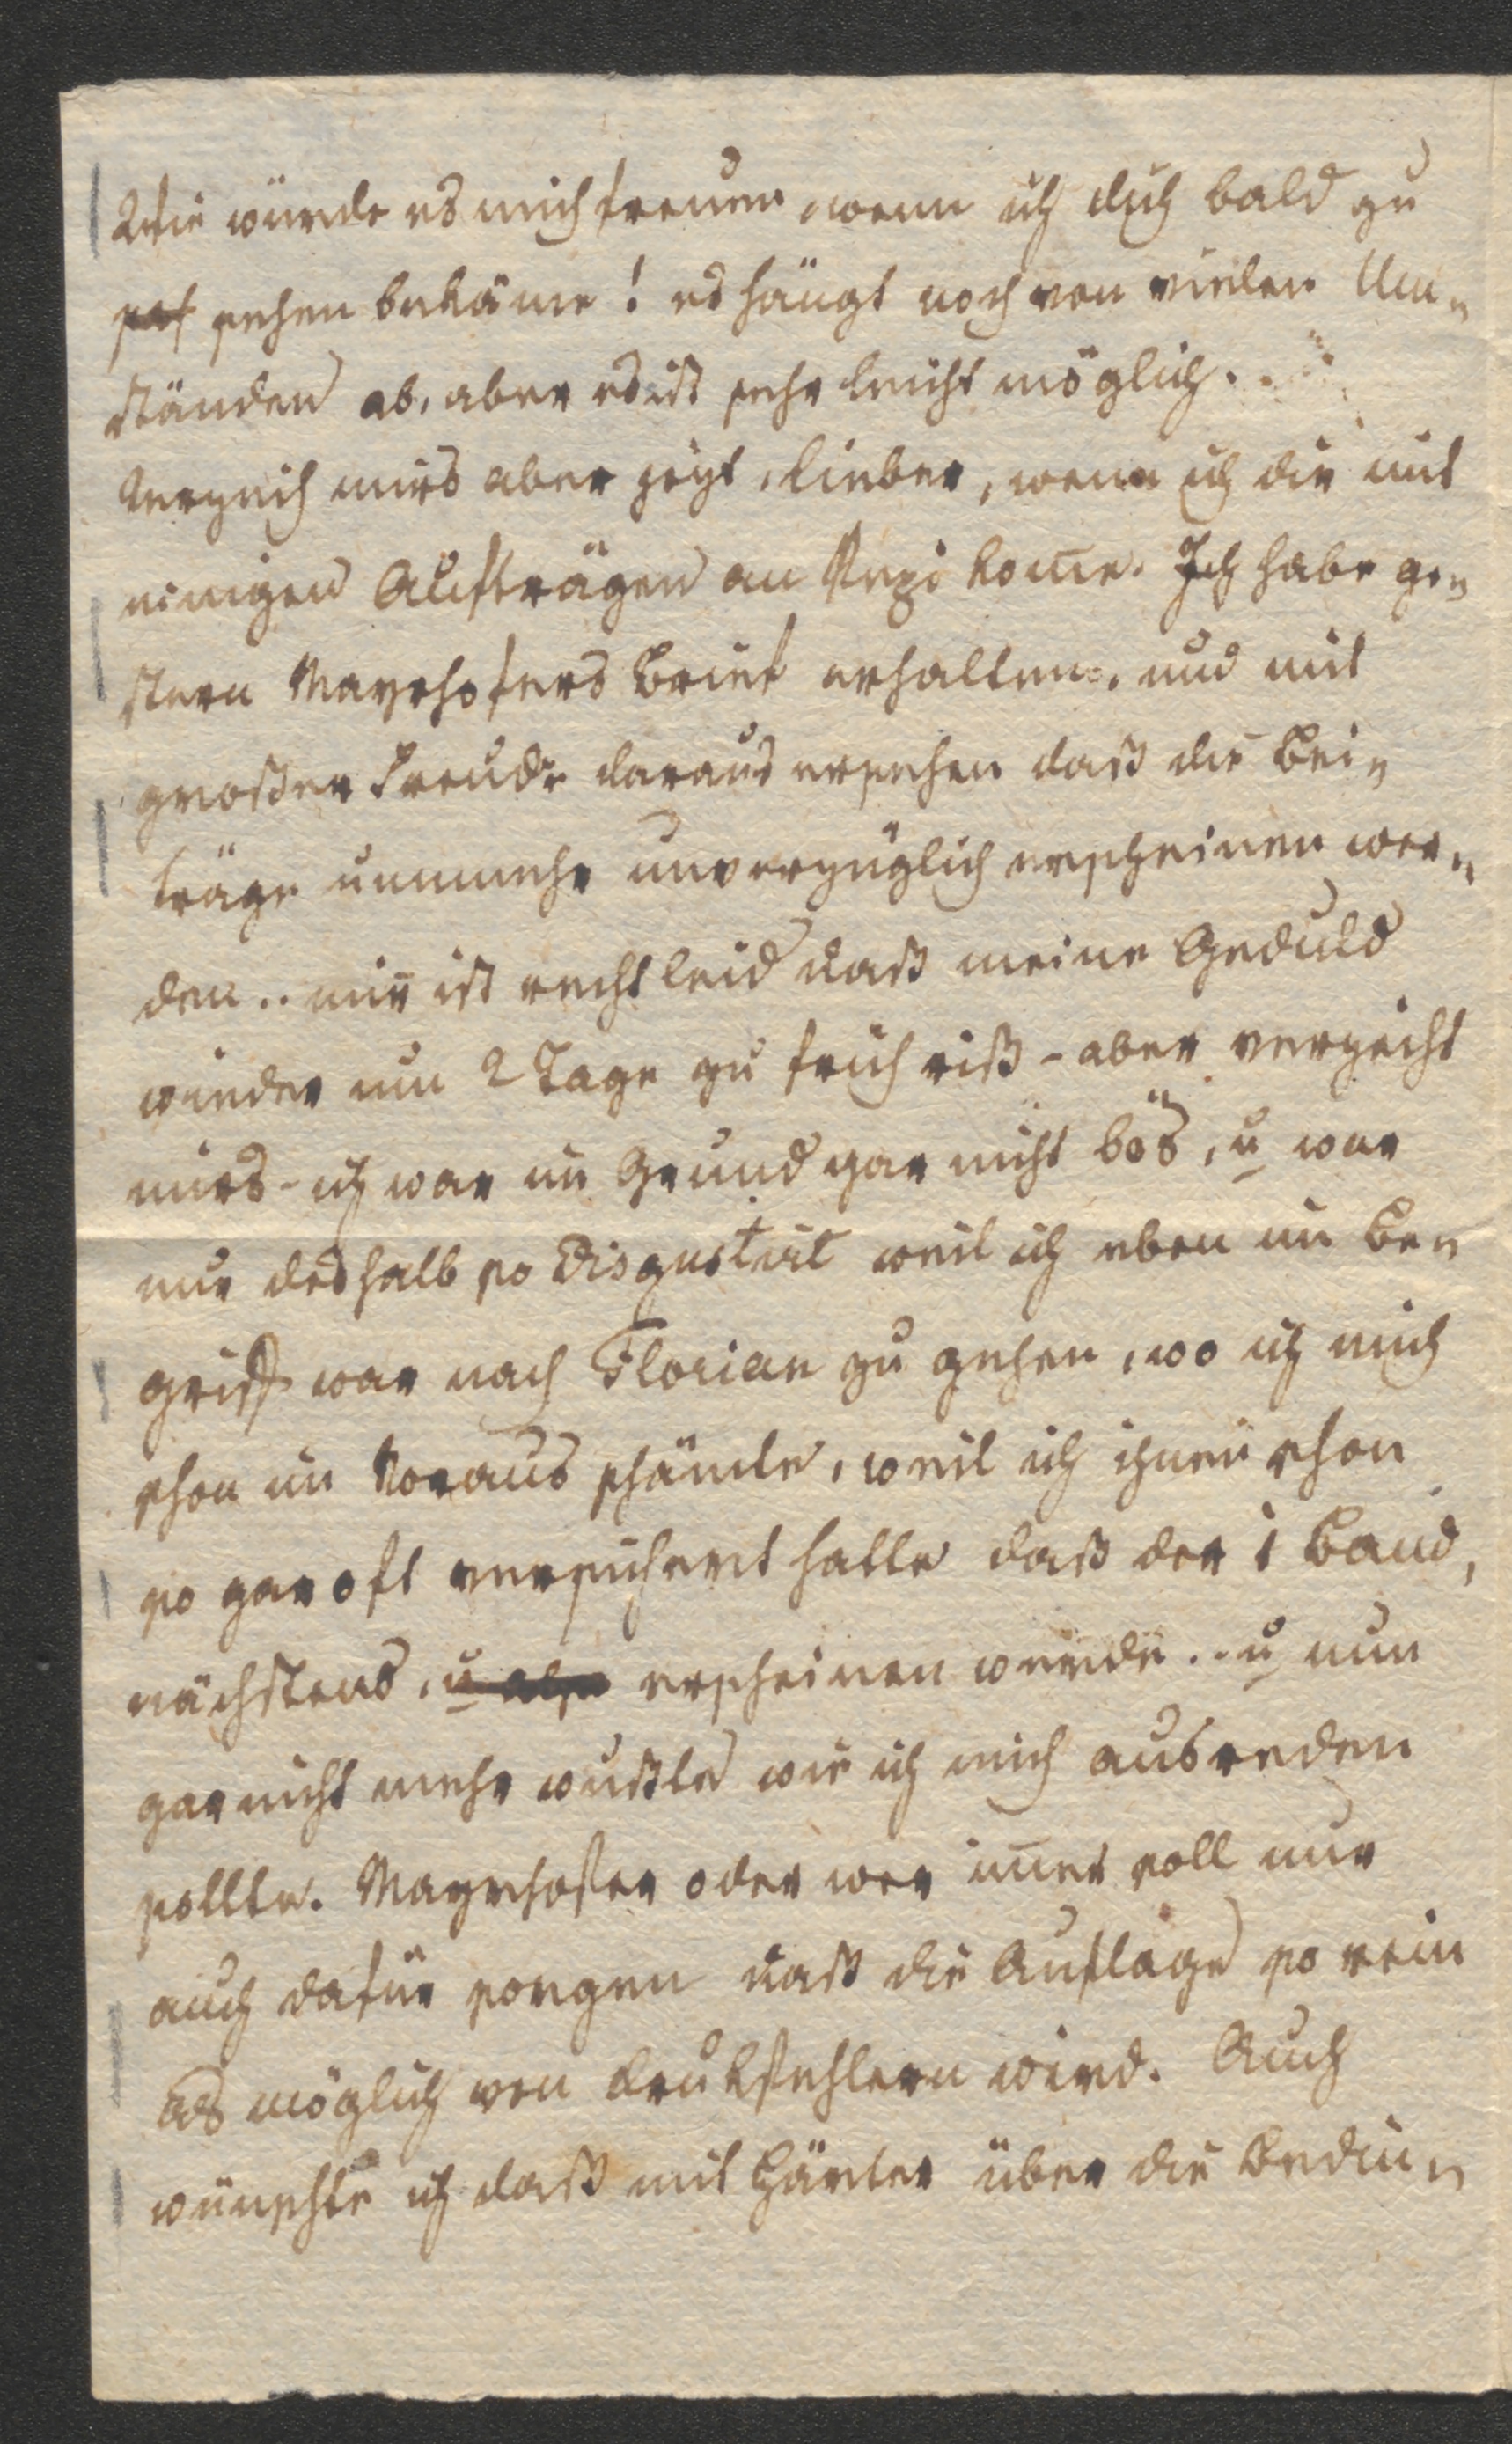 Wie würde es mich freuen, wenn ich dich bald zu
seh sehen bekäme! es hängt noch von vielen Um„
ständen ab, aber es ist sehr leicht möglich..
Verzeih mirs aber jezt, Lieber, wenn ich dir mit
einigen Aufträgen an Pepi kom̄e. Ich habe ge„
stern Mayrhofers Brief erhalten, und mit
großer Freude daraus ersehen daß die Bei„
träge nunmehr unverzüglich erscheinen wer„
den.. mir ist recht leid daß meine Geduld
wieder um 2 Tage zu früh riß - aber verzeiht
mirs - ich war im Grund gar nicht bös, u war
nur deshalb so disgustirt weil ich eben im Be„
griff war nach Florian zu gehen, wo ich mich
schon im Voraus schämte, weil ich ihnen schon
so gar oft versichert hatte daß der 1 Band,
nächstens, u also erscheinen werde.. u nun
gar nicht mehr wußte wie ich mich ausreden
sollte. Mayrhofer oder wer im̄er soll nur
auch dafür sorgen daß die Auflage so rein
als möglich von Drukfehlern wird. Auch
wünschte ich daß mit Härter über die Bedin„